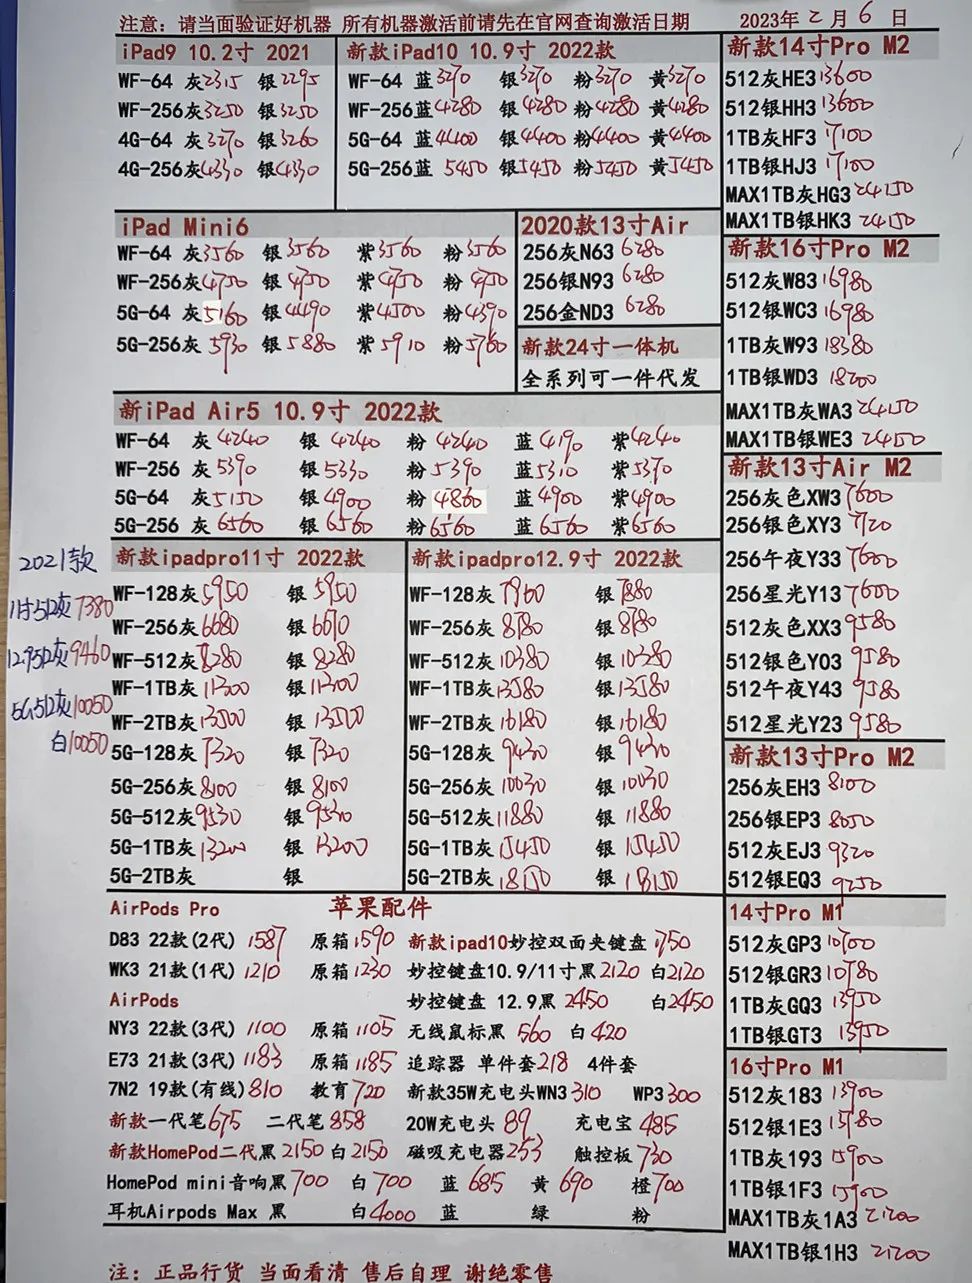 注意：请当面验证好机器 所有机器激活前请先在官网查询激活日期
2023年2月6日
iPad9 10.2寸 2021
WF-64 灰2315 银2295
WF-256灰3250 银3250
4G-64 灰3270 银3260
4G-256灰4330 银4330
新款iPad10 10.9寸 2022款
WF-64 蓝3270 银3270 粉3270 黄3270
WF-256蓝4280 银4280 粉4280 黄4280
5G-64 蓝4400 银4400 粉4400 黄4400
5G-256蓝 5450 银5450 粉5450 黄5450
iPad Mini6
WF-64 灰3560 银3560 紫3560 粉3560
WF-256灰4750 银4750 紫4750 粉4750
5G-64 灰5160 银4490 紫4500 粉4390
5G-256灰 5930 银5880 紫5910 粉5760
2020款13寸Air
256灰N63 6280
256银N93 6280
256金ND3 6280
新款24寸一体机
全系列可一件代发
新iPad Air5 10.9寸 2022款
WF-64 灰4240 银4240 粉4240 蓝4190 紫4240
WF-256 灰5390 银5330 粉5390 蓝5310 紫5370
5G-64 灰5150 银4900 粉4860 蓝4900 紫4900
5G-256 灰6560 银6560 粉6560 蓝6560 紫6560
2021款
11寸512灰7380
12.9512灰9460
5G512灰10050
白10050
新款ipadpro11寸 2022款
WF-128灰5950 银5950
WF-256灰6680 银6670
WF-512灰8280 银8280
WF-1TB灰11300 银11300
WF-2TB灰13500 银13500
5G-128灰7320 银7320
5G-256灰8100 银8100
5G-512灰9530 银9530
5G-1TB灰13200 银13200
5G-2TB灰 银
新款ipadpro12.9寸 2022款
WF-128灰7960 银7880
WF-256灰8780 银8780
WF-512灰10380 银10380
WF-1TB灰13580 银13580
WF-2TB灰16180 银16180
5G-128灰9430 银9430
5G-256灰10030 银10030
5G-512灰11880 银11880
5G-1TB灰15450 银15450
5G-2TB灰18150 银18150
苹果配件
AirPods Pro
D83 22款(2代) 1587 原箱1590 新款ipad10妙控双面夹键盘1750
WK3 21款(1代) 1210 原箱1230 妙控键盘10.9/11寸黑2120 白2120
AirPods 妙控键盘 12.9黑2450 白2450
NY3 22款(3代) 1100 原箱1105 无线鼠标黑560 白420
E73 21款(3代) 1183 原箱1185 追踪器 单件套218 4件套
7N2 19款(有线)810 教育720 新款35W充电头WN3 310 WP3 300
新款一代笔675 二代笔858 20W充电头 89 充电宝 485
新款HomePod二代黑2150 白2150 磁吸充电器253 触控板730
HomePod mini音响黑700 白700 蓝 685 黄 690 橙700
耳机Airpods Max 黑 白4000 蓝 绿 粉
注：正品行货 当面看清 售后自理 谢绝零售
新款14寸Pro M2
512灰HE3 13600
512银HH3 13600
1TB灰HF3 17100
1TB银HJ3 17100
MAX1TB灰HG3 24150
MAX1TB银HK3 24150
新款16寸Pro M2
512灰W83 16980
512银WC3 16980
1TB灰W93 18380
1TB银WD3 18200
MAX1TB灰WA3 24150
MAX1TB银WE3 24150
新款13寸Air M2
256灰色XW3 7600
256银色XY3 7720
256午夜Y33 7600
256星光Y13 7600
512灰色XX3 9580
512银色Y03 9580
512午夜Y43 9580
512星光Y23 9580
新款13寸Pro M2
256灰EH3 8100
256银EP3 8050
512灰EJ3 9320
512银EQ3 9250
14寸Pro M1
512灰GP3 10700
512银GR3 10780
1TB灰GQ3 13950
1TB银GT3 13950
16寸Pro M1
512灰183 13900
512银1E3 13780
1TB灰193 15900
1TB银1F3 15900
MAX1TB灰1A3 21200
MAX1TB银1H3 21200